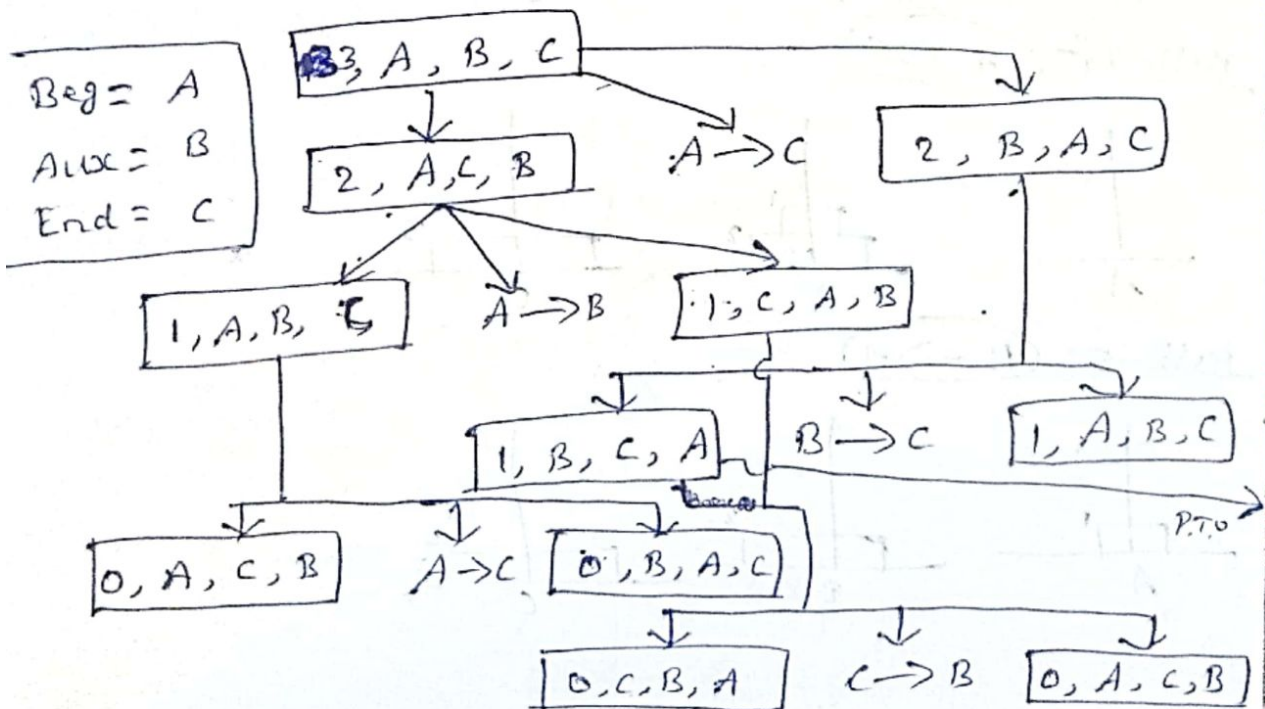 Beg = A
Aux = B
End = C
3, A, B, C
A → C
2, A, C, B
2, B, A, C
1, A, B, C
A → B
1, C, A, B
1, B, C, A
B → C
1, A, B, C
P.T.O
0, A, C, B
A → C
0, B, A, C
0, C, B, A
C → B
0, A, C, B